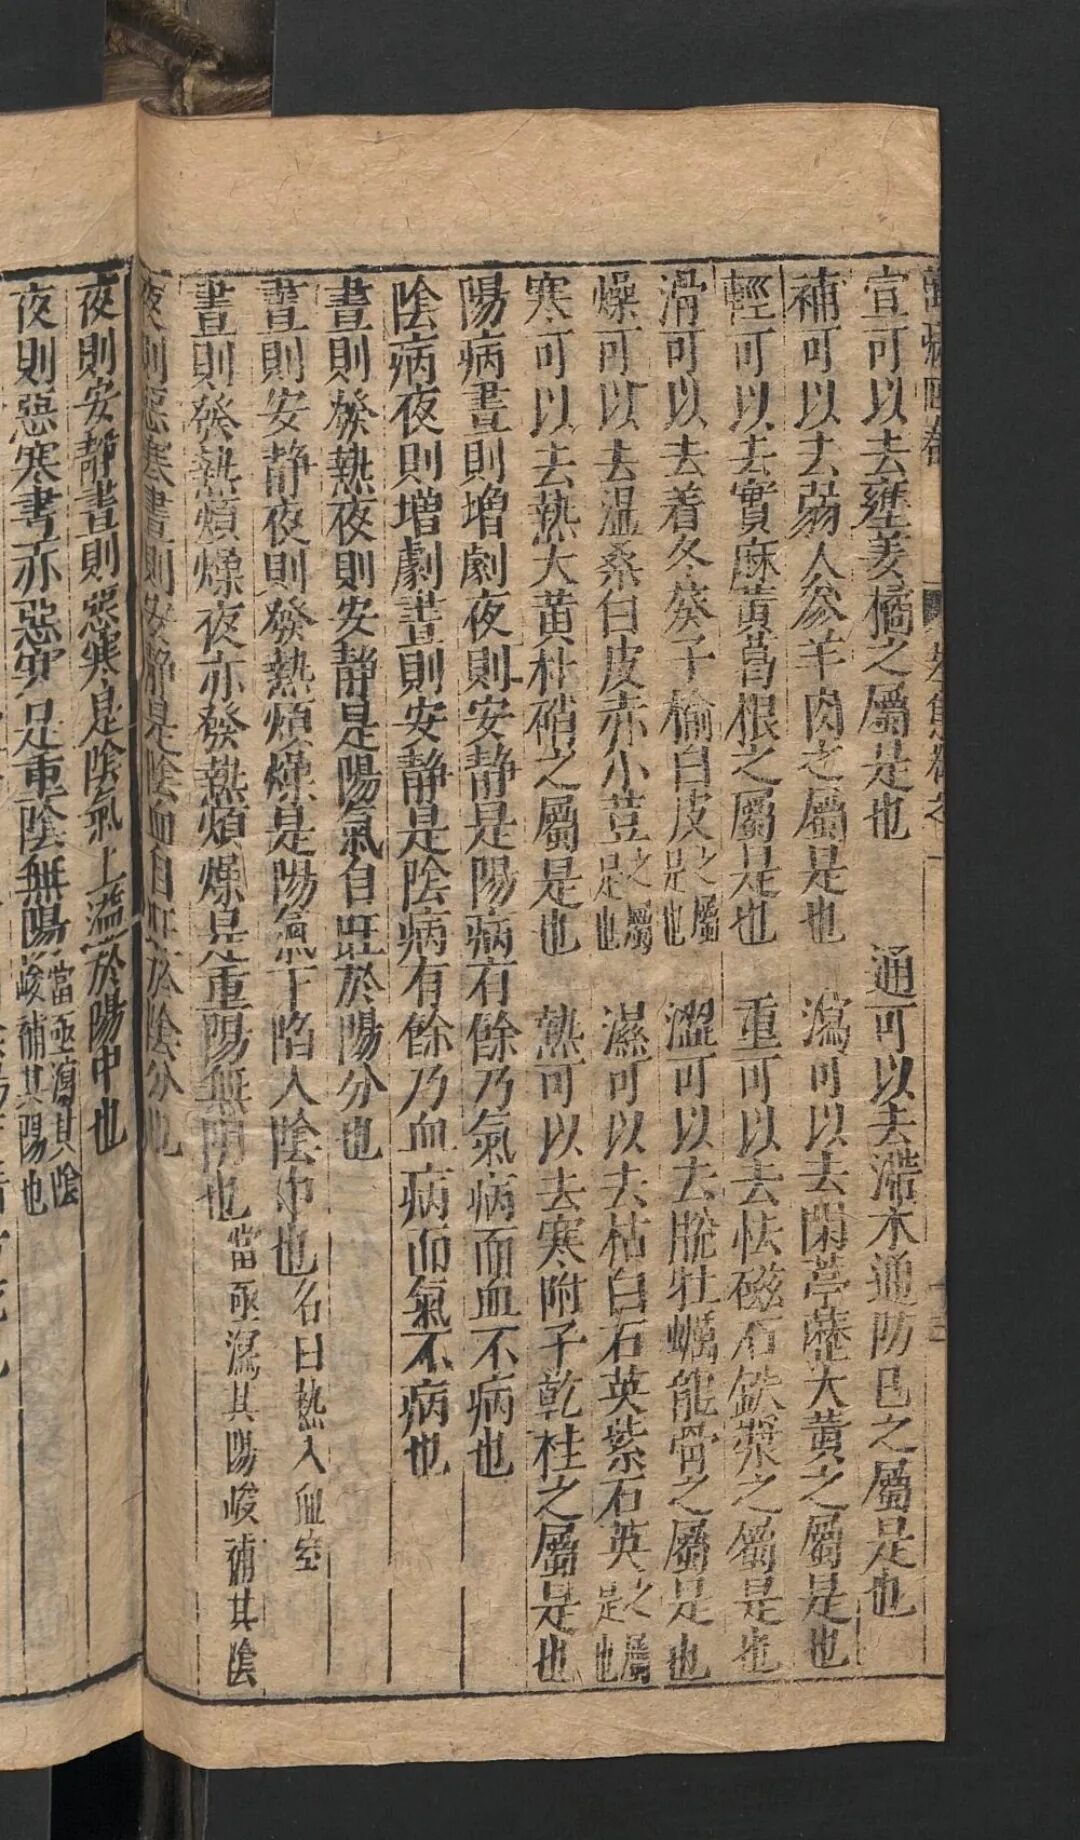 萬病回春
卷之一
宣可以去壅姜橘之屬是也 通可以去滯木通防已之屬是也
補可以去弱人參羊肉之屬是也 瀉可以去閉葶藶大黃之屬是也
輕可以去實麻黃葛根之屬是也 重可以去怯磁石鉄漿之屬是也
滑可以去着冬葵子榆白皮之屬是也 澀可以去脫牡蠣龍骨之屬是也
燥可以去溫桑白皮赤小荳之屬是也 濕可以去枯白石英紫石英之屬是也
寒可以去熱大黃朴硝之屬是也 熱可以去寒附子乾桂之屬是也
陽病晝則增劇夜則安靜是陽病有餘乃氣病而血不病也
陰病夜則增劇晝則安靜是陰病有餘乃血病而氣不病也
晝則發熱夜則安靜是陽氣自旺於陽分也
晝則安靜夜則發熱煩燥是陽氣下陷入陰中也名曰熱入血室
晝則發熱煩燥夜亦發熱煩燥是重陽無陰也當亟瀉其陽峻補其陰
夜則惡寒晝則安靜是陰血自旺於陰分也
夜則安靜晝則惡寒是陰氣上溢於陽中也
夜則惡寒晝亦惡寒是重陰無陽當亟瀉其陰峻補其陽也